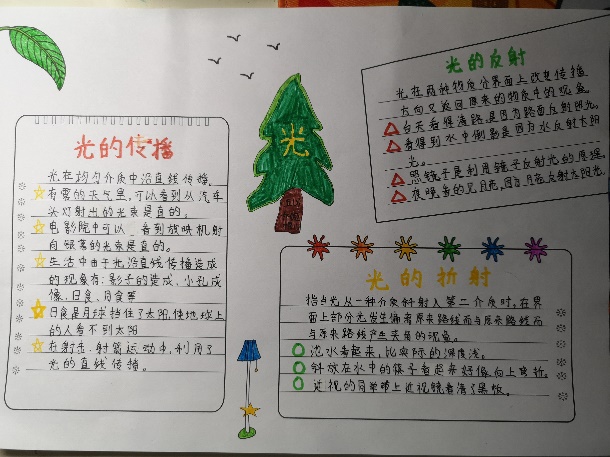 光的传播
光在均匀介质中沿直线传播。
有雾的天气里,可以看到从汽车
头灯射出的光束是直的。
电影院中可以 看到放映机射
向银幕的光束是直的。
生活中由于光沿直线传播造成
的现象有:影子的造成、小孔成
像、日食、月食等
日食是月球挡住了太阳,使地球上
的人看不到太阳
在射击、射箭运动中,利用了
光的直线传播。
光
光的反射
光在两种物质分界面上改变传播
方向又返回原来的物质中的现象。
白天看得清路,是因为路面反射阳光。
看得到水中倒影是因为水反射太阳
光。
照镜子是利用镜子反射光的原理。
夜晚看的见月亮,因为月亮反射太阳光
光的折射
指点光从一种介质斜射入第二介质时,在界
面上部分光发生偏离原来路线而与原来路线而
与原来路线产生夹角的现象。
池水看起来,比实际的深度浅。
斜放在水中的筷子看起来好像向上弯折。
近视的同学带上近视镜看清了黑板。